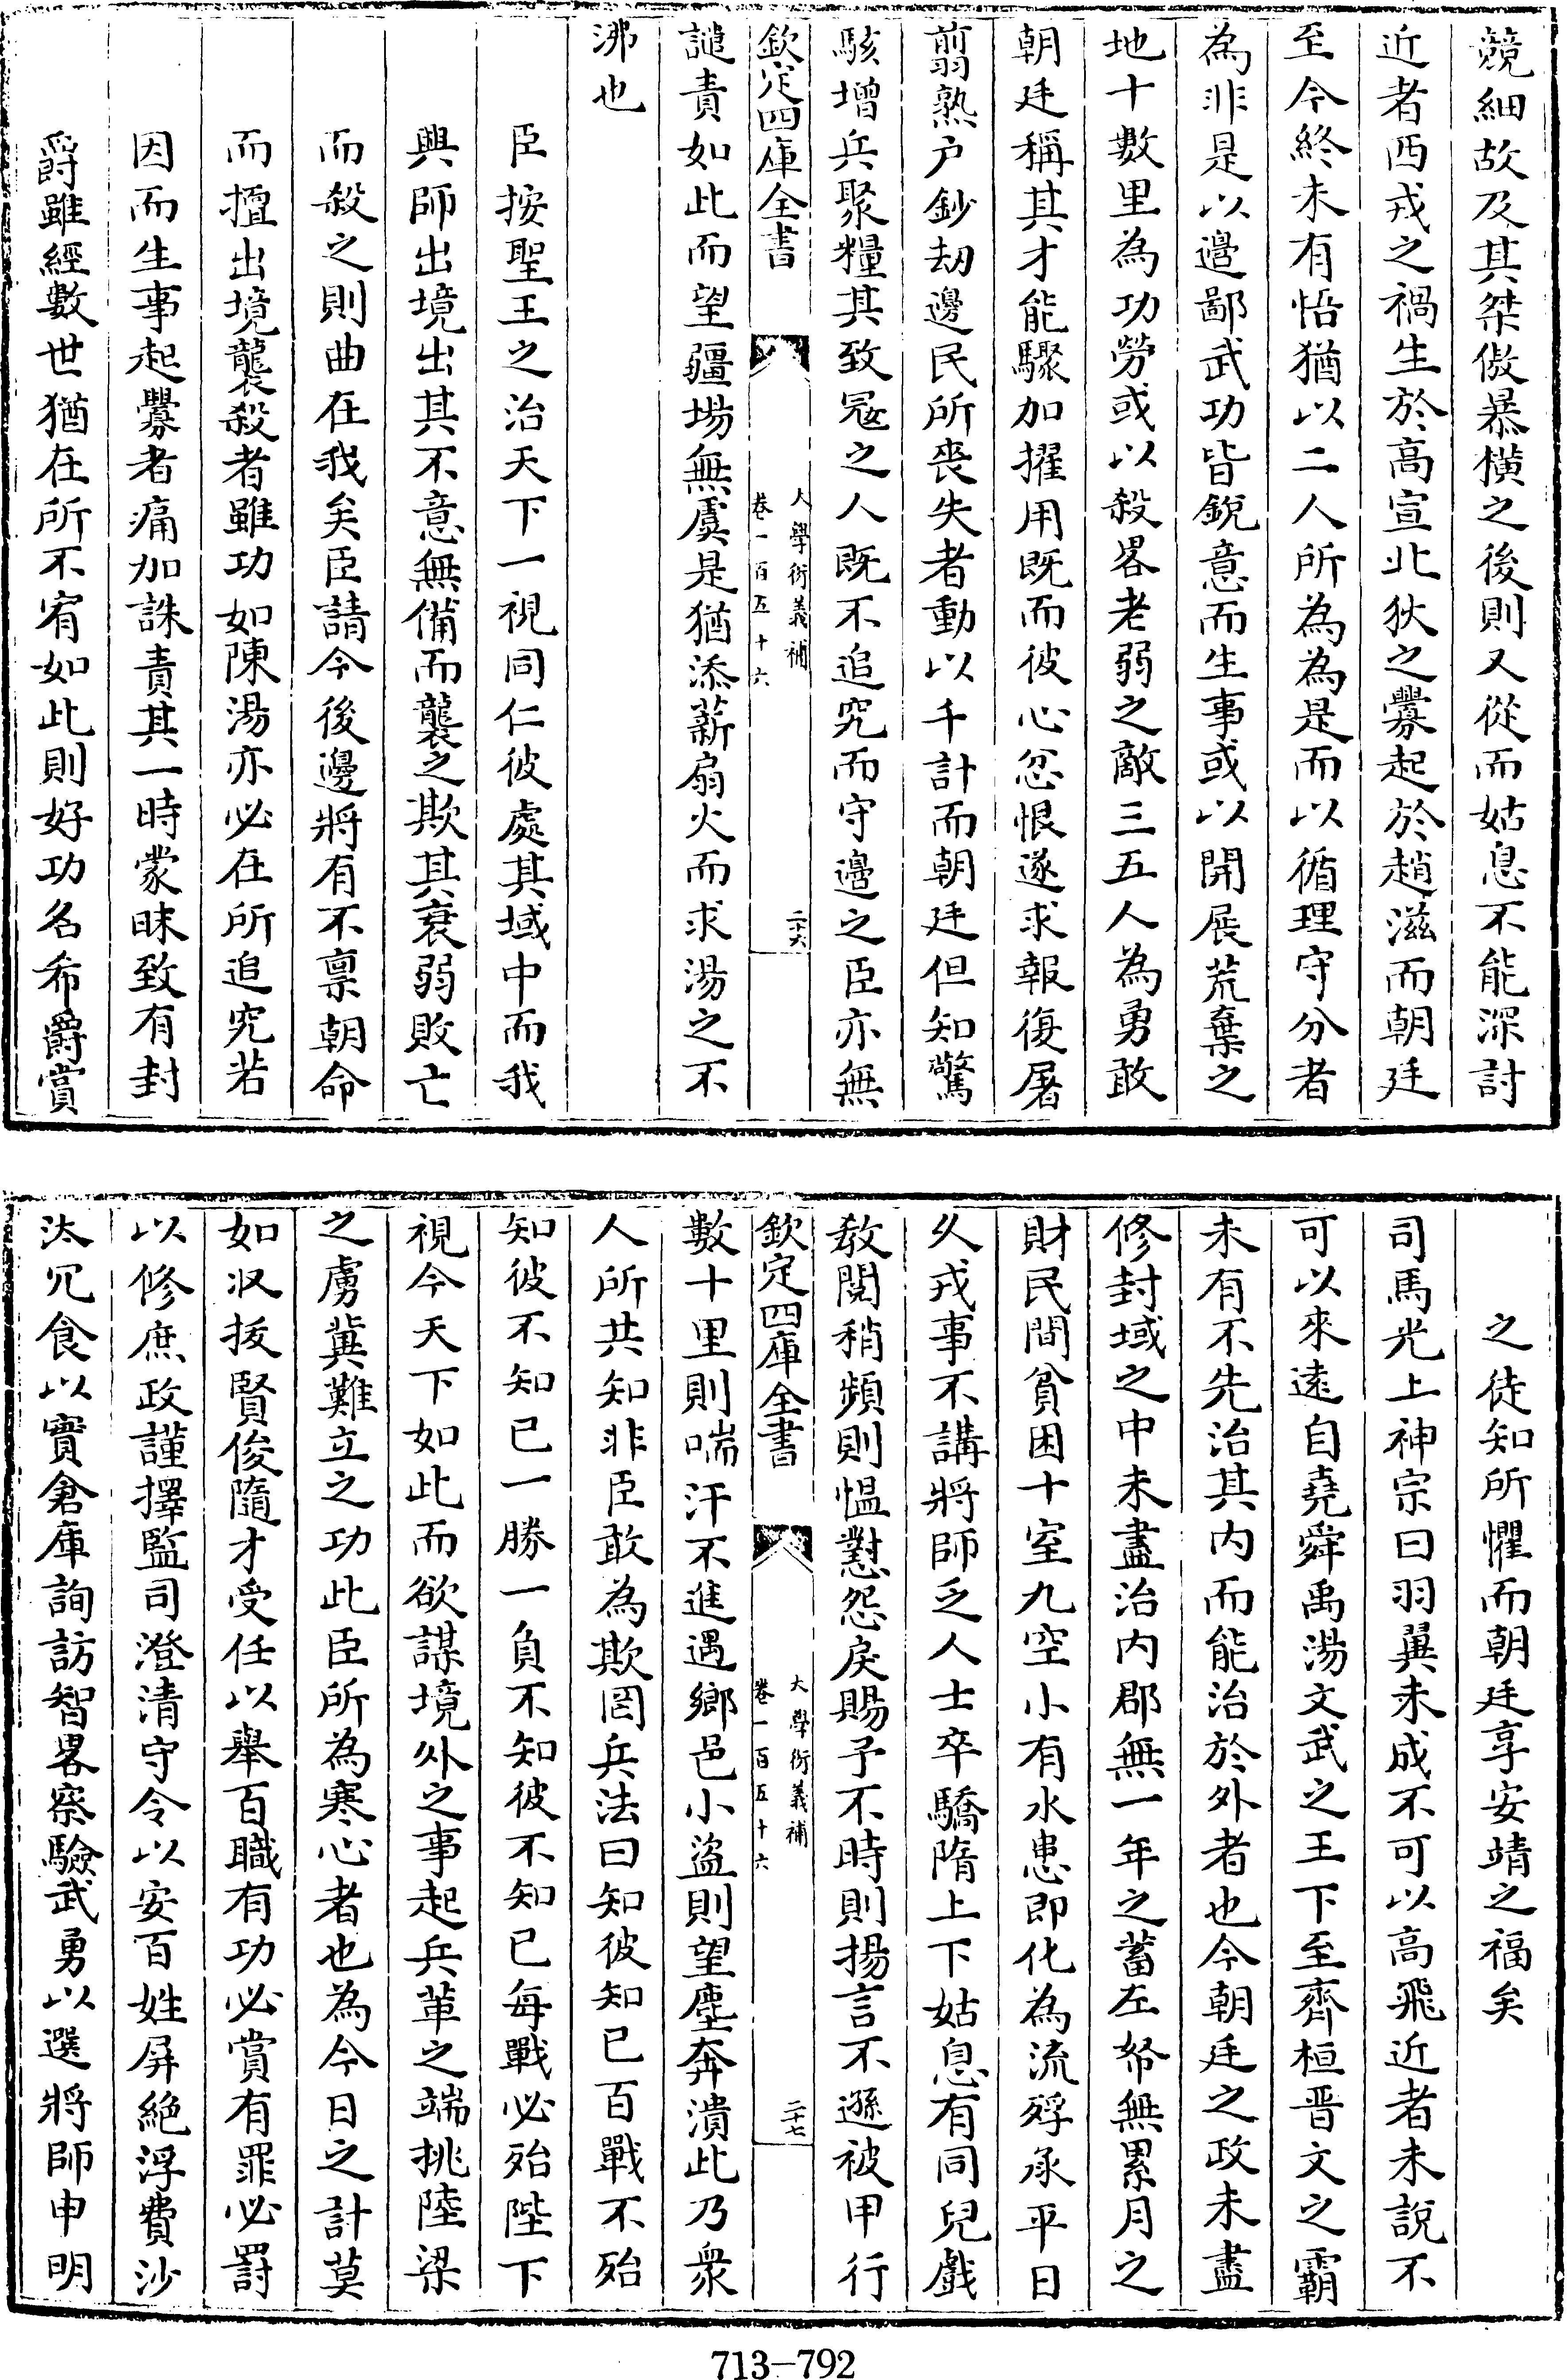 競細故及其桀傲暴橫之後則又從而姑息不能深討
近者西戎之禍生於高宣北狄之釁起於趙滋而朝廷
至今終未有悟猶以二人所為為是而以循理守分者
為非是以邊鄙武功皆銳意而生事或以開展荒棄之
地十數里為功勞或以殺畧老弱之敵三五人為勇敢
朝廷稱其才能驟加擢用既而彼心忿恨遂求報復屠
翦熟户鈔刼邊民所喪失者動以千計而朝廷但知驚
駭增兵聚糧其致冦之人既不追究而守邉之臣亦無
欽定四庫全書
大學衍義補
卷一百五十六
二十六
譴責如此而望疆埸無虞是猶添薪扇火而求湯之不
沸也
臣按聖王之治天下一視同仁彼處其域中而我
興師出境出其不意無備而襲之欺其衰弱敗亡
而殺之則曲在我矣臣請今後邊將有不禀朝命
而擅出境襲殺者雖功如陳湯亦必在所追究若
因而生事起釁者痛加誅責其一時蒙昧致有封
爵雖經數世猶在所不宥如此則好功名希爵賞
之徒知所懼而朝廷享安靖之福矣
司馬光上神宗曰羽翼未成不可以高飛近者未說不
可以來遠自堯舜禹湯文武之王下至齊桓晉文之霸
未有不先治其内而能治於外者也今朝廷之政未盡
修封域之中未盡治内郡無一年之蓄左帑無累月之
財民間貧困十室九空小有水患即化為流殍承平日
久戎事不講將師乏人士卒驕隋上下姑息有同兒戲
教閱稍頻則愠懟怨戾賜予不時則揚言不遜被甲行
欽定四庫全書
大學衍義補
卷一百五十六
二十七
數十里則喘汗不進遇鄉邑小盜則望塵奔潰此乃衆
人所共知非臣敢為欺罔兵法曰知彼知已百戰不殆
知彼不知已一勝一負不知彼不知已每戰必殆陛下
視今天下如此而欲謀境外之事起兵革之端挑陸梁
之虜冀難立之功此臣所為寒心者也為今日之計莫
如収拔賢俊隨才受任以舉百職有功必賞有罪必罸
以修庶政謹擇監司澄清守令以安百姓屏絕浮費沙
汰冗食以實倉庫詢訪智畧察驗武勇以選將師申明
713-792